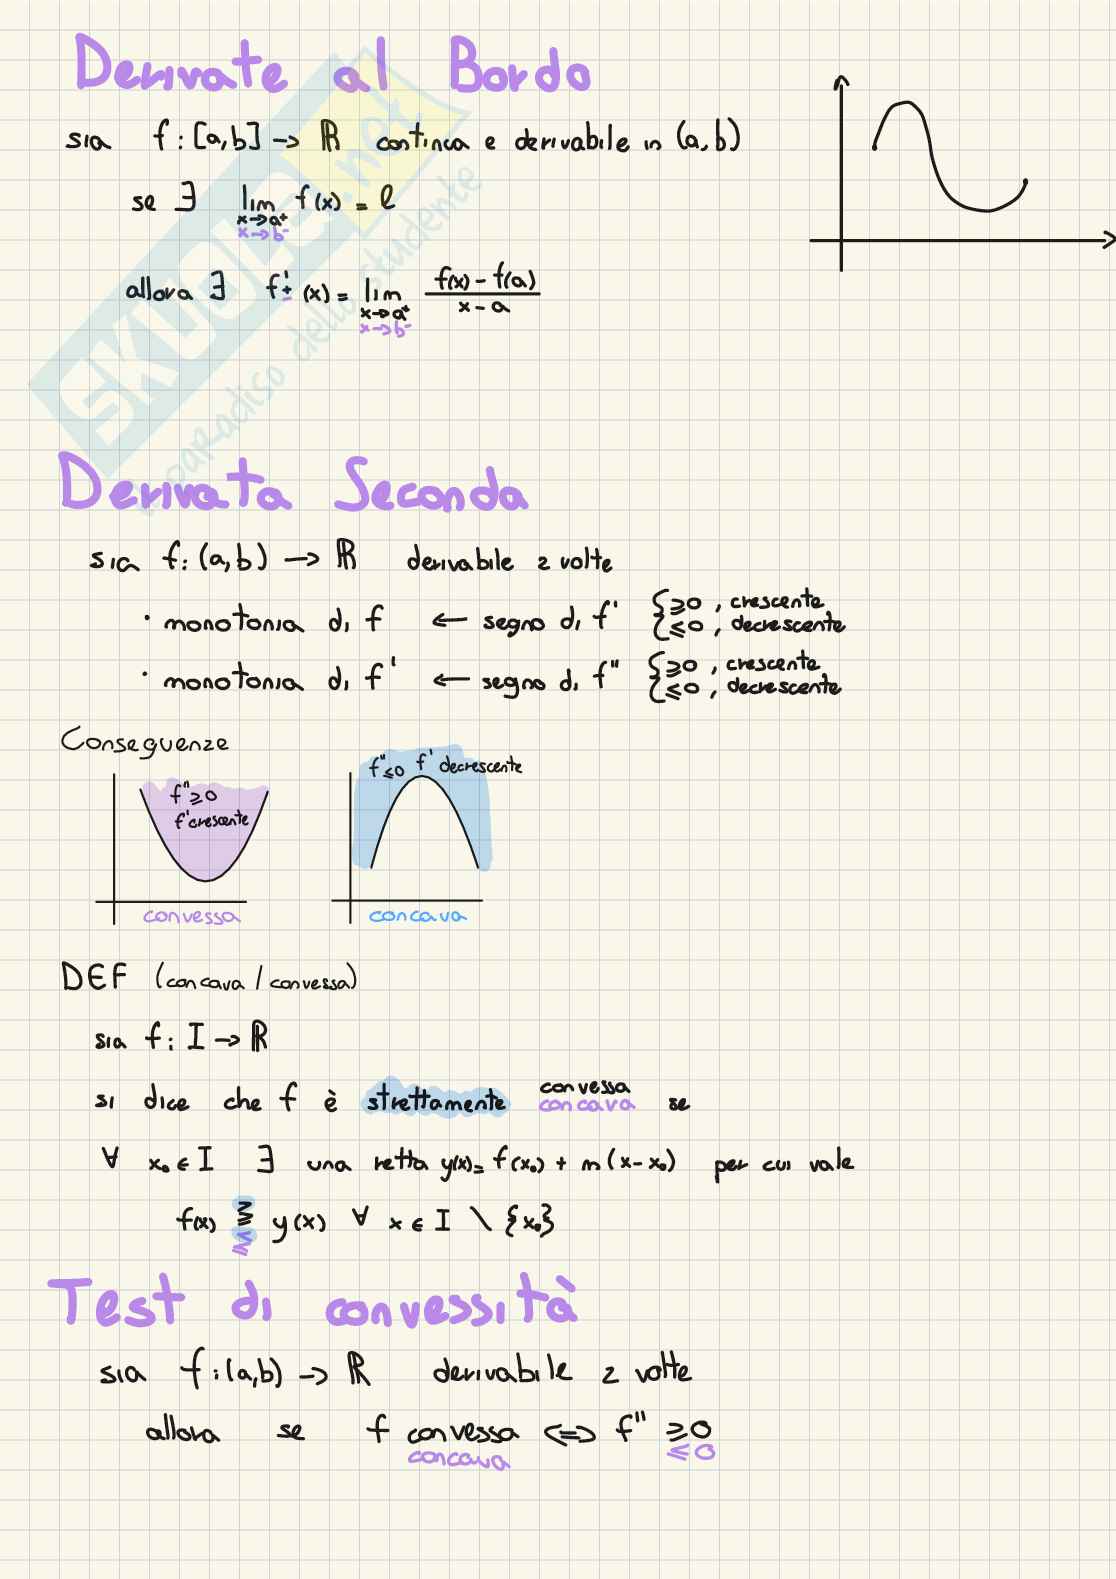 Derivate al Bordo
sia f : [a,b] → ℝ continua e derivabile in (a,b)
se ∃ lim f(x) = ℓ
x→a⁺
x→b⁻
allora ∃ f'± (x) = lim f(x) - f(a) / x - a
x→a⁺
x→b⁻
SKUOLA.net
il paradiso dello studente
Derivata Seconda
sia f : (a,b) → ℝ derivabile 2 volte
· monotonia di f ← segno di f' { ≥0 , crescente
≤0 , decrescente
· monotonia di f' ← segno di f'' { ≥0 , crescente
≤0 , decrescente
Conseguenze
f''≥0
f' crescente
convessa
f''≤0 f' decrescente
concava
DEF (concava / convessa)
sia f : I → ℝ
si dice che f è strettamente convessa se
concava
∀ x₀ ∈ I ∃ una retta y(x) = f(x₀) + m(x-x₀) per cui vale
f(x) ≥ y(x) ∀ x ∈ I \ {x₀}
≤
Test di convessità
sia f : (a,b) → ℝ derivabile 2 volte
allora se f convessa ⟺ f'' ≥0
concava ≤0